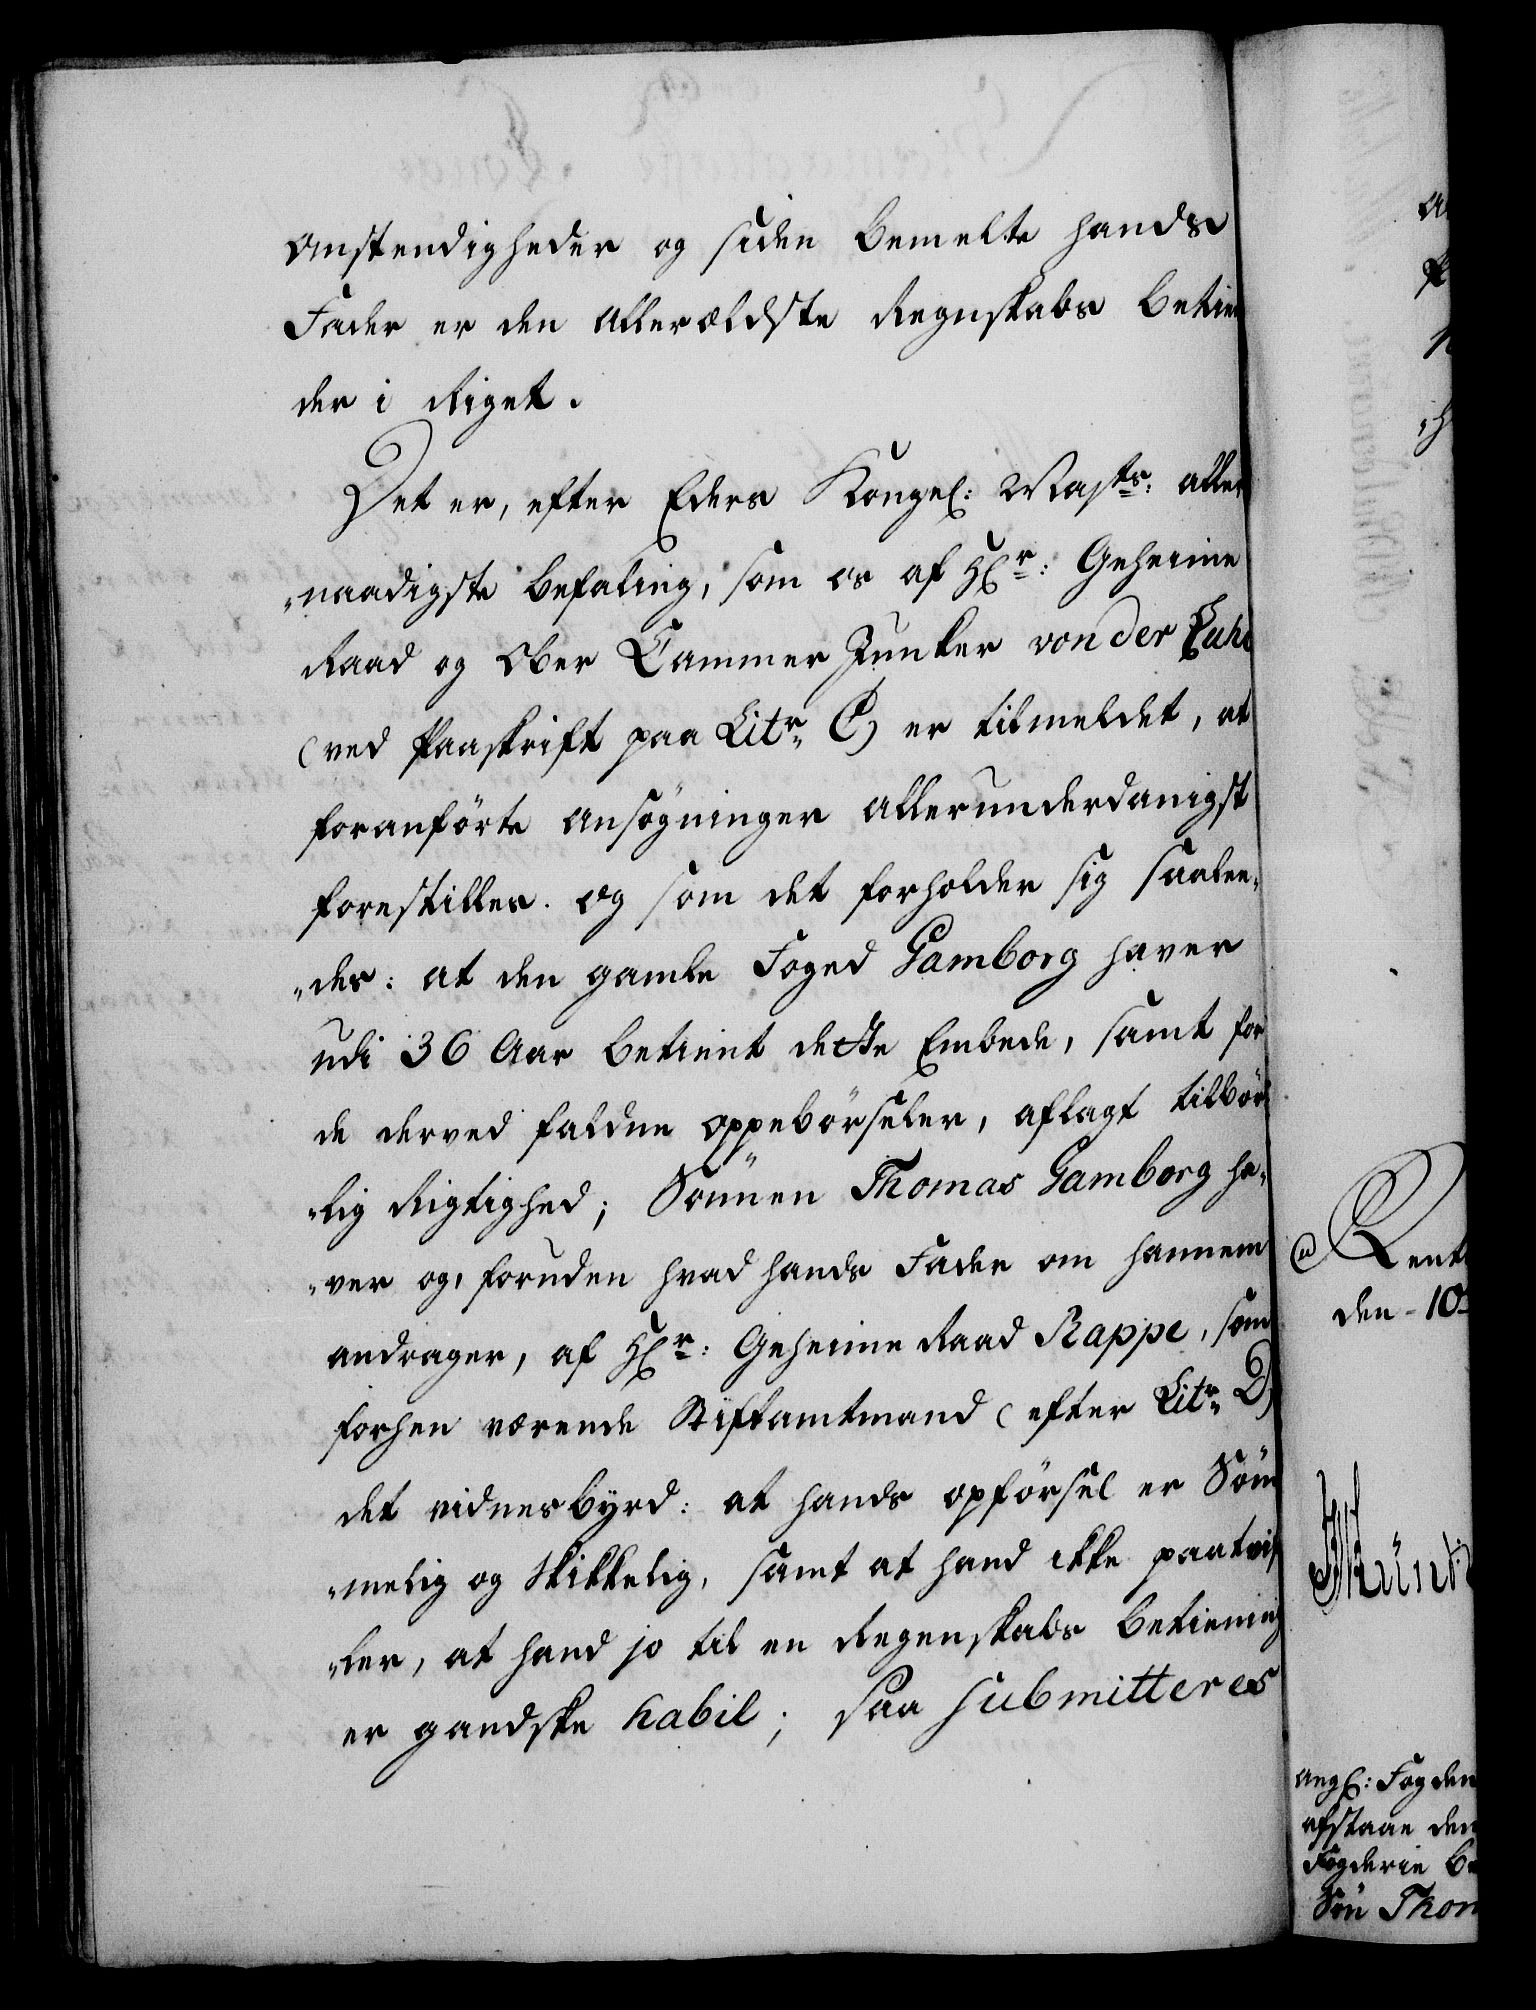 Anstendigheder og siden bemelte hands
Fader er den allerældste Regnskabs betien
der i Riget.
Det er, efter Eders Kongel: Mayts: aller
"naadigste befaling, som os af Hr: Geheime
Raad og Ober Cammer Junker von der Luhe
(ved Paaskrift paa Litr C) er tilmeldet, at
foranførte ansøgninger allerunderdanigst
forestilles. Og som det forholder sig saalee„
„des: at den gamle Foged Gamborg haver
udi 36 Aar betient dette Embede, samt for
de derved faldne oppebørseler, aflagt tilbør
„lig Rigtighed; Sønnen Thomas Gamborg ha„
„ver og, foruden hvad hands Fader om hannem
andrager, af Hr: Geheime Raad Rappe, som
forhen værende Stiftamtmand (efter Litr D)
det vidnesbyrd: at hands opførsel er Søm
„melig og skikkelig, samt at hand ikke paatvif
„ler, at hand jo til en Regenskabs betiening
er gandske habil; saa submitteres
Rente
den 10
Angl: Fogden
afstaae den
Fogderie be
Søn Thom